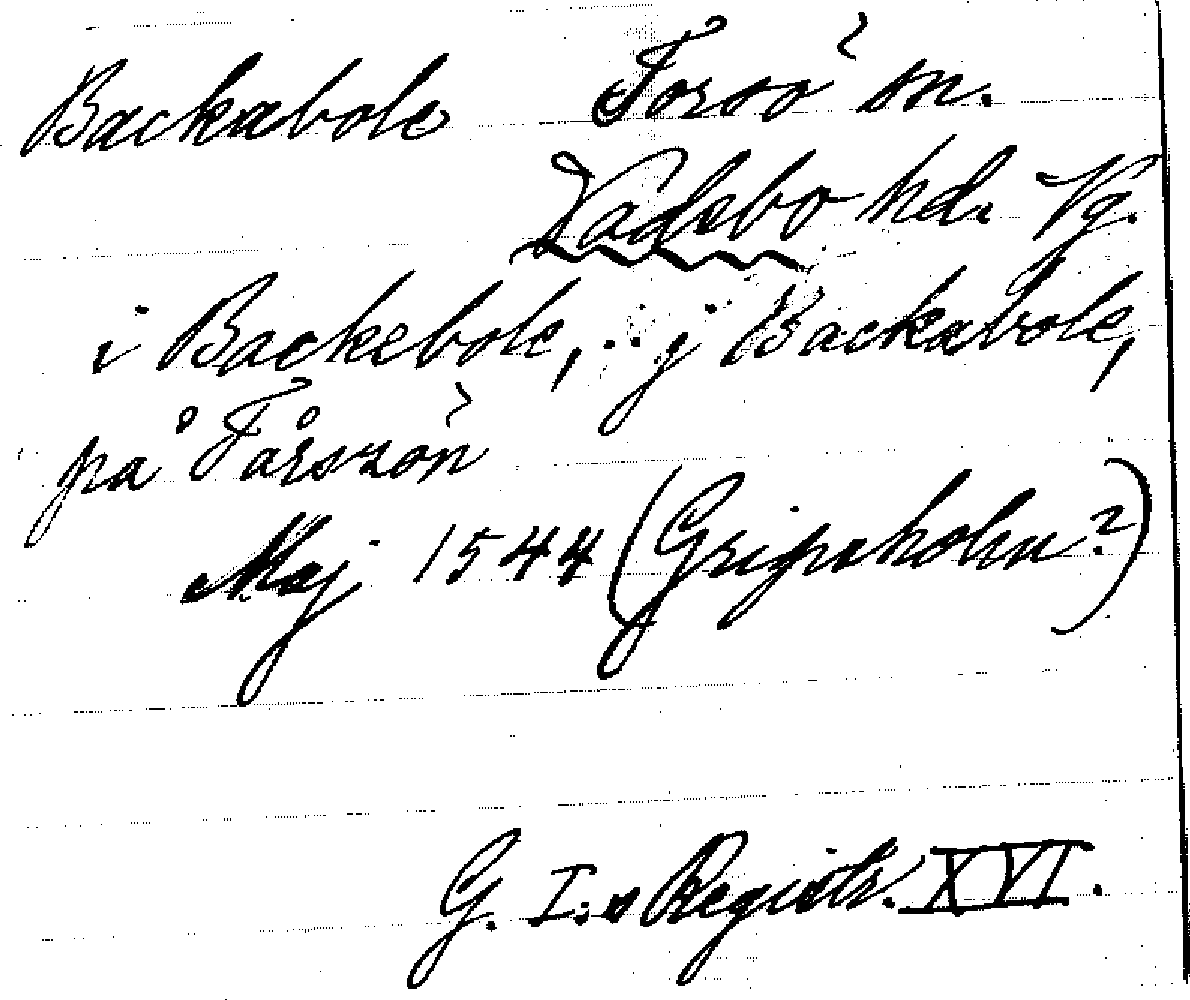 Backabole Torsö sn.
Vadsbo hd. Vg.
i Backebole, .. j Backabole,
på Tårszön
Maj 1544 (Gripsholm?)
G. I:s Registr. XVI.